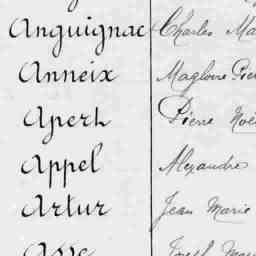 Anguignac Charles Ma
Anneix Magloire Pier
Aperh Pierre Noë
Appel Alexandre
Artur Jean Marie